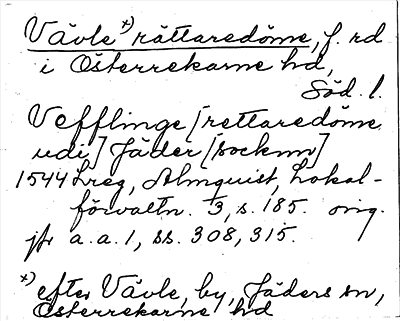 Vävle *) rättaredöme, f. rd
i Österrekarne hd,
Söd. l.
Vefflinge [rettaredöme
udi] Jäder [socknn]
1544 Lreg, Almquist, Lokal-
förvaltn. 3, s. 185. orig.
jfr a.a. 1, ss. 308, 315.
*) efter Vävle, by, Jäders sn,
Österrekarne hd